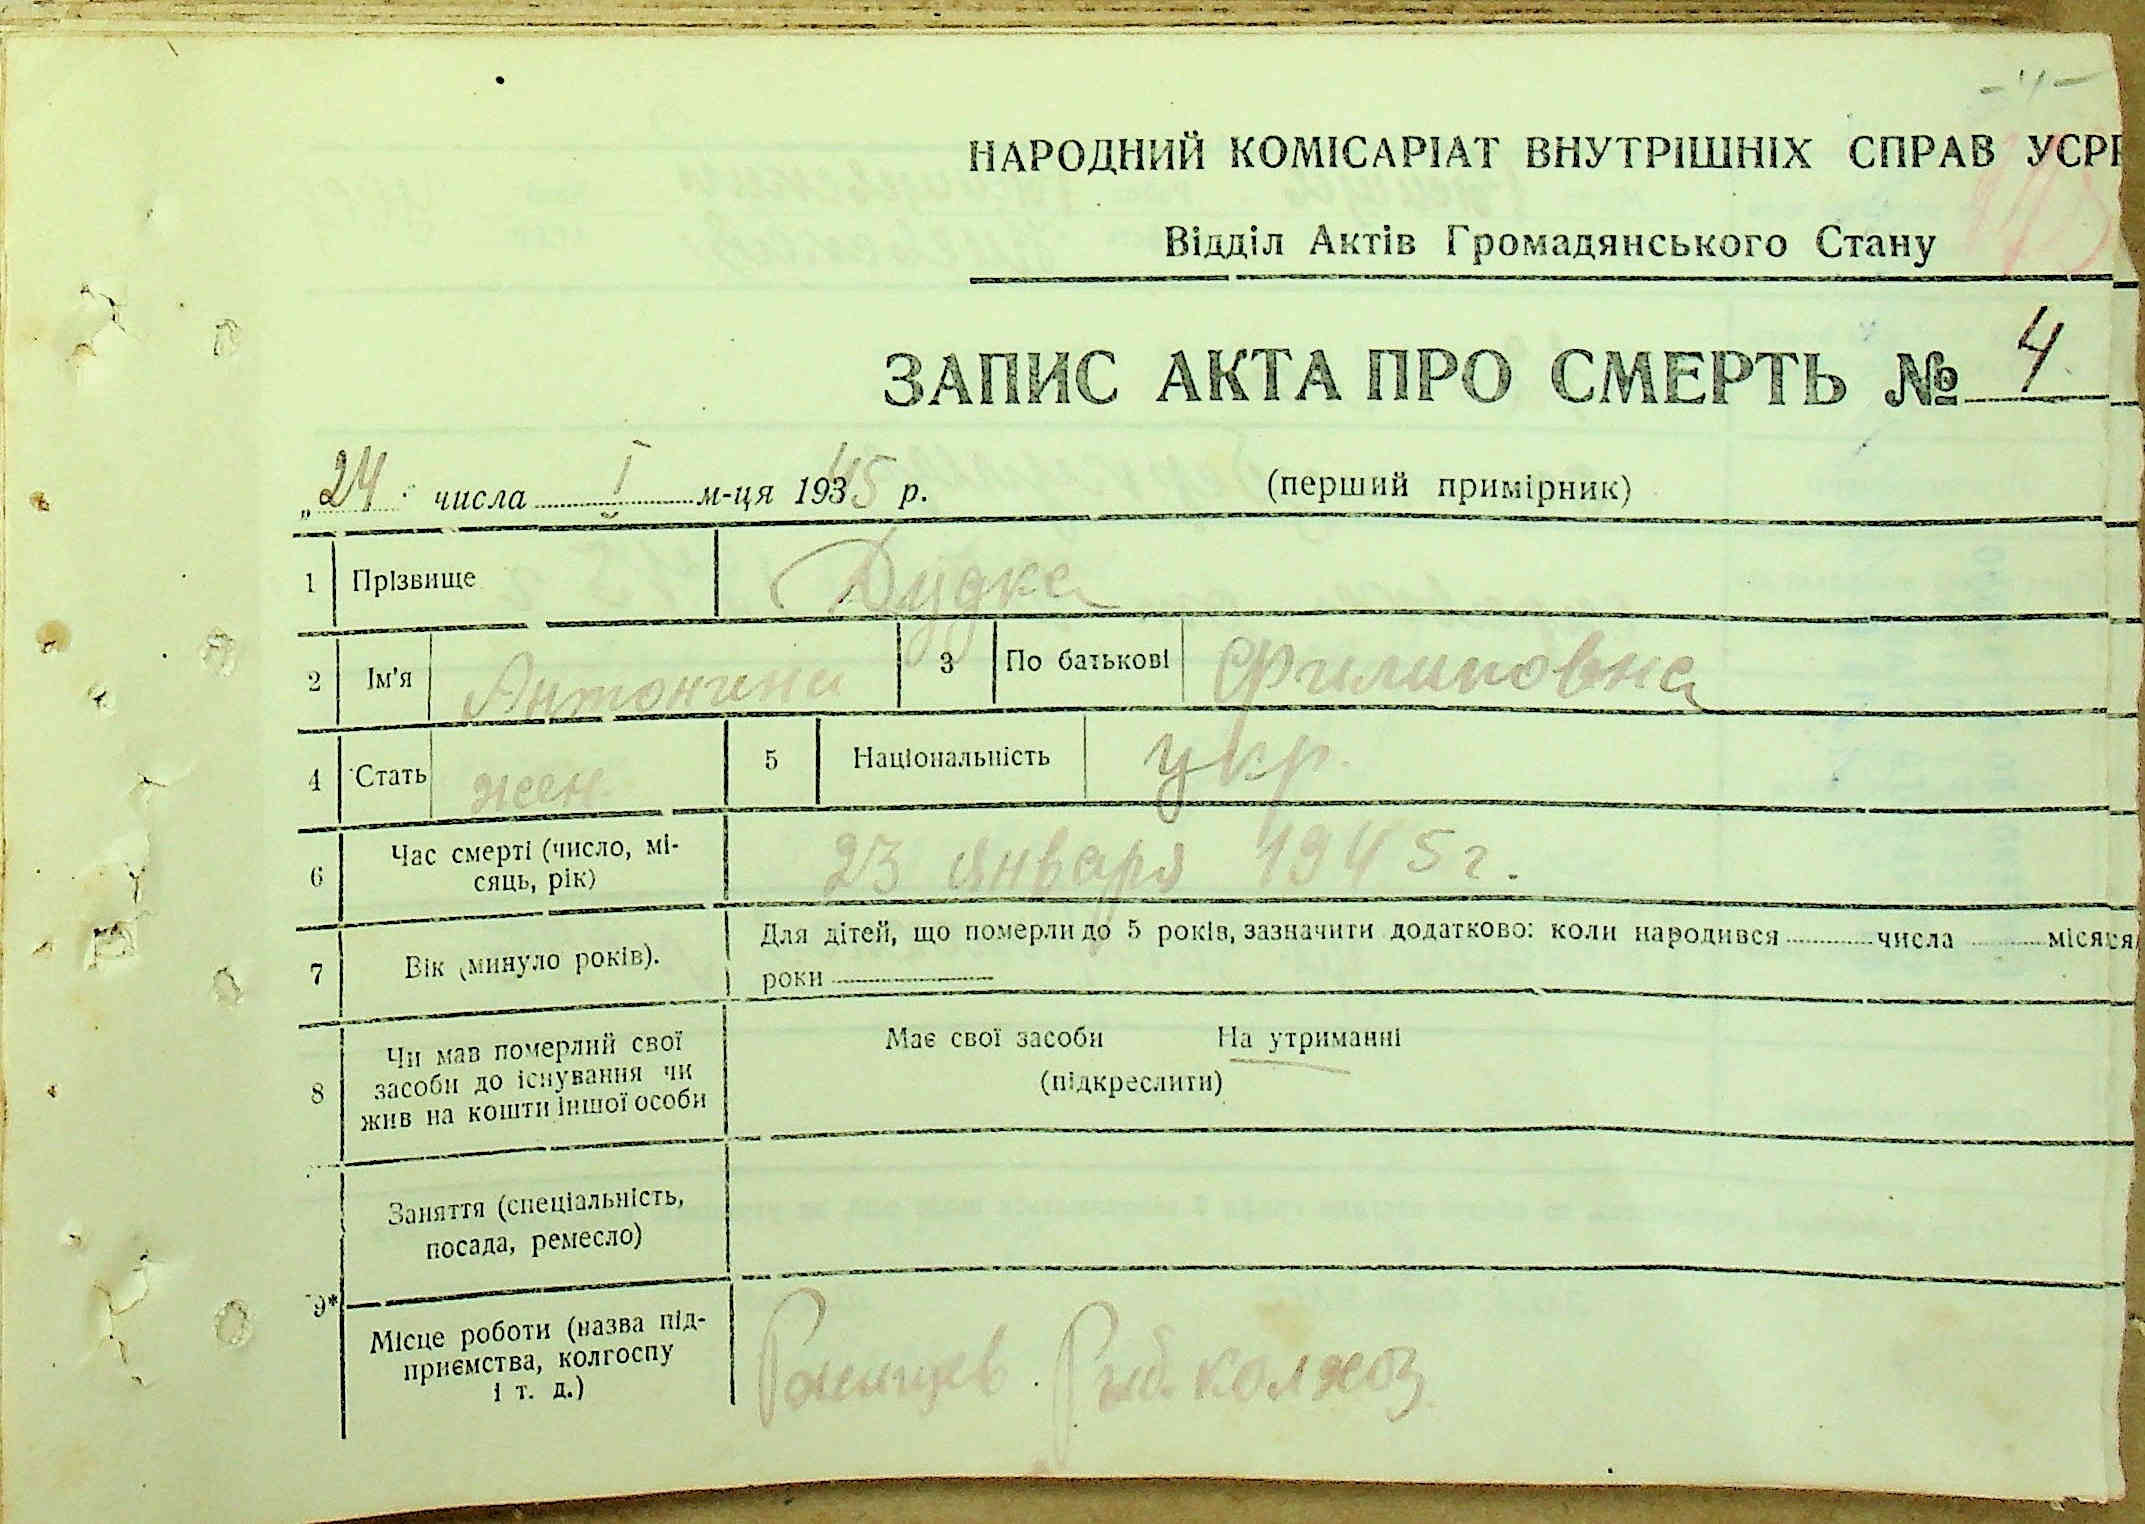 -4-
НАРОДНИЙ КОМІСАРІАТ ВНУТРІШНІХ СПРАВ УСРР
Відділ Актів Громадянського Стану
ЗАПИС АКТА ПРО СМЕРТЬ № 4
„24 числа I м-ця 1945 р. (перший примірник)
1 Прізвище Дудка
2 Ім'я Антонина 3 По батькові Филиповна
4 Стать жен. 5 Національність укр.
6 Час смерті (число, мі-
сяць, рік) 23 января 1945 г.
7 Вік (минуло років). Для дітей, що померли до 5 років, зазначити додатково: коли народився числа місяця
роки
8 Чи мав померлий свої
засоби до існування чи
жив на кошти іншої особи
Має свої засоби На утриманні
(підкреслити)
9*
Заняття (спеціальність,
посада, ремесло)
Місце роботи (назва під-
приємства, колгоспу
і т. д.)
Рыб. колхоз